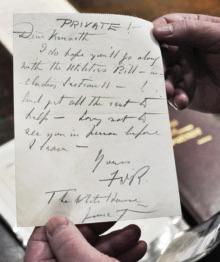 PRIVATE!
Dear Kenneth
I do hope you'll go along
with the Utilities Bill - in-
cluding Section 11 - !
And get all the rest to
help - Sorry not to
see you in person before
I leave -
Yours
FDR
The White House
June